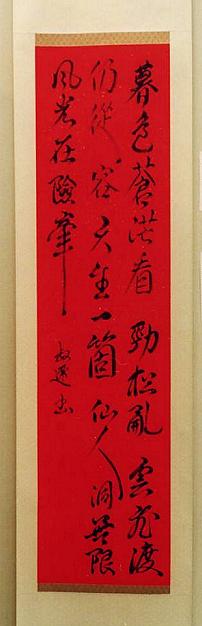 暮色蒼茫看勁松亂雲飛渡
仍從容天生一箇仙人洞無限
風光在險峯
書